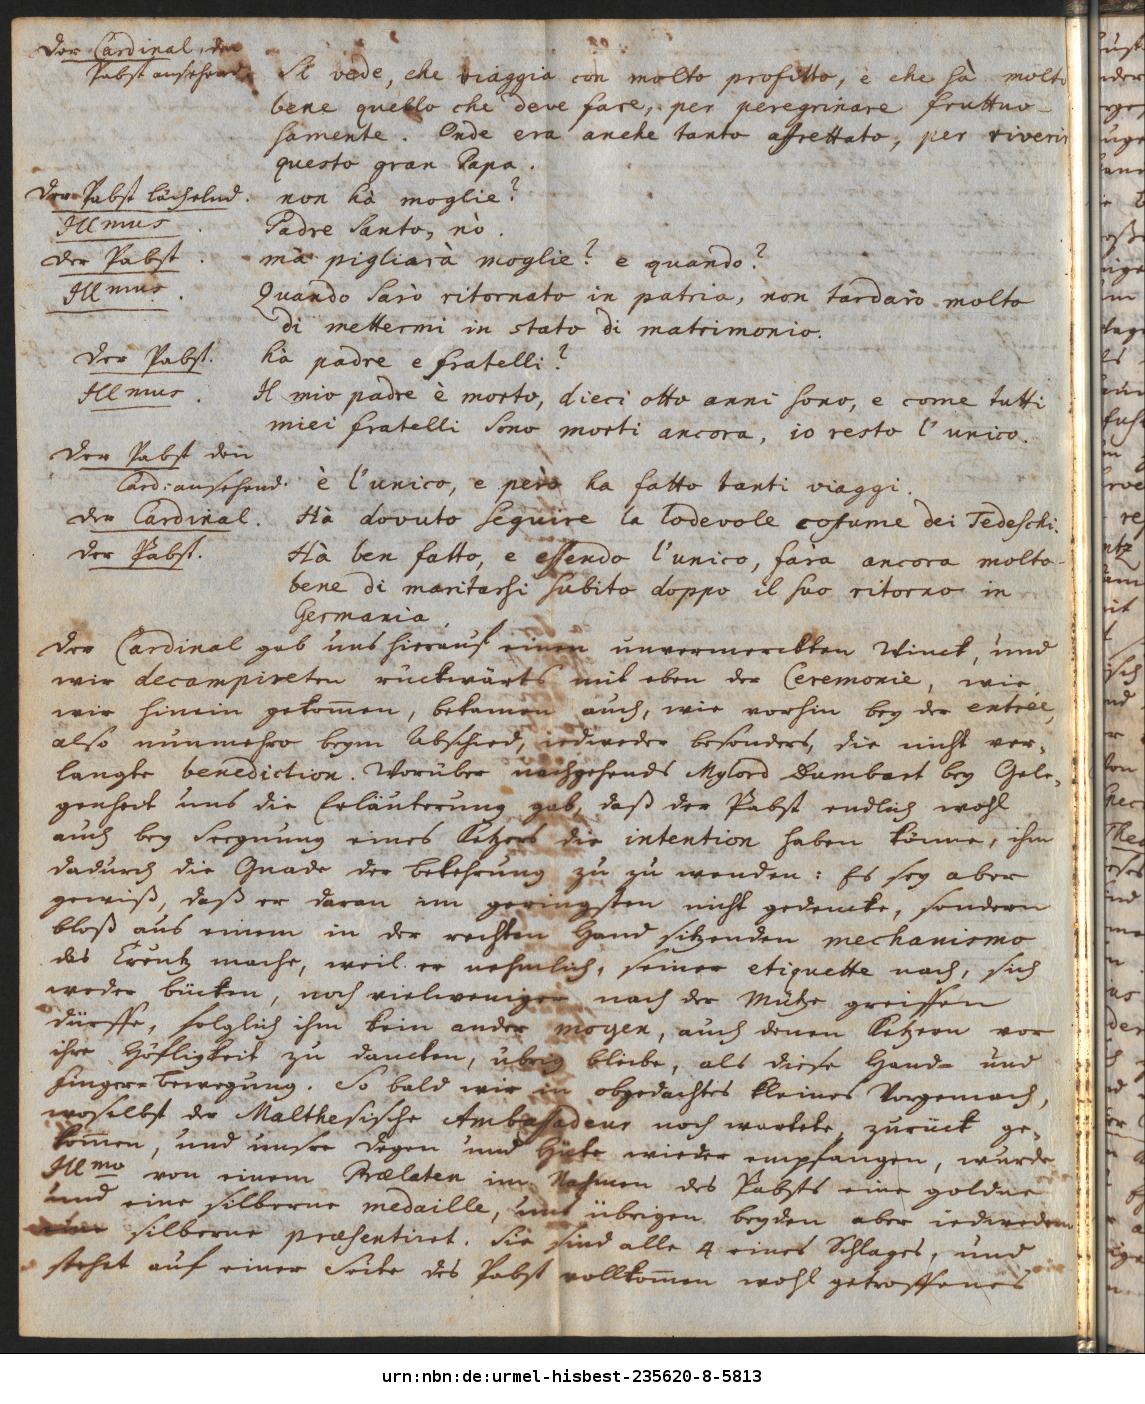 Der Cardinal, den
Pabst ansehend. Si vede, che viaggia con molto profitto, è che hà molto
bene quello che deve fare, per peregrinare fruttuo-
samente. Onde era anche tanto affrettato, per riverir
questo gran Papa.
Der Pabst lächelnd. non hà moglie?
Illmus. Padre Santo, nò.
Der Pabst. mà pigliarà moglie? e quando?
Illmus. Quando sarò ritornato in patria, non tardarò molto
di mettermi in stato di matrimonio.
Der Pabst. hà padre e fratelli?
Illmus. Il mio padre è morto, dieci otto anni sono, e come tutti
miei fratelli sono morti ancora, io resto l'unico.
Der Pabst den
Card: ansehend. è l'unico, e però ha fatto tanti viaggi.
Der Cardinal. Hà dovuto seguire la lodevole costume dei Tedeschi.
Der Pabst. Hà ben fatto, e essendo l'unico, farà ancora molto
bene di maritarsi subito doppo il suo ritorno in
Germania.
Der Cardinal gab uns hierauf einen unvermerckten Winck, und
wir decampireten rückwärts mit eben der Ceremonie, wie
wir hinein gekom̄en, bekamen auch, wie vorhin bey der entrée,
also nunmehro beym Abschied, iedweder besonders, die nicht ver-
langte benediction. Worüber nachgehends Mylord Dumbart bey Gele-
genheit uns die Erläuterung gab, daß der Pabst endlich wohl
auch bey Seegnung eines Ketzers die intention haben könne, ihm
dadurch die Gnade der bekehrung zu zu wenden: Es sey aber
gewiß, daß er daran im geringsten nicht gedencke, sondern
bloß aus einem in der rechten Hand sitzenden mechanismo
das Creutz mache, weil er nehmlich, seiner etiquette nach, sich
weder bücken, noch vielweniger nach der Mütze greiffen
dürffe, folglich ihm kein ander moyen, auch denen Ketzern vor
ihre Höfligkeit zu dancken, übrig bleibe, als diese Hand- und
finger-bewegung. So bald wir in obgedachtes kleines Vorgemach,
woselbst der Malthesische Ambassadeur noch wartete, zurück ge-
kom̄en, und unsre Degen und Hüte wieder empfangen, wurde
Illmo von einem Prælaten im Nahmen des Pabsts eine goldne
und eine silberne medaille, uns übrigen beyden aber iedwedem
eine silberne præsentiret. Sie sind alle 4 eines Schlages, und
stehet auf einer Seite des Pabst vollkom̄en wohl getroffenes
urn:nbn:de:urmel-hisbest-235620-8-5813